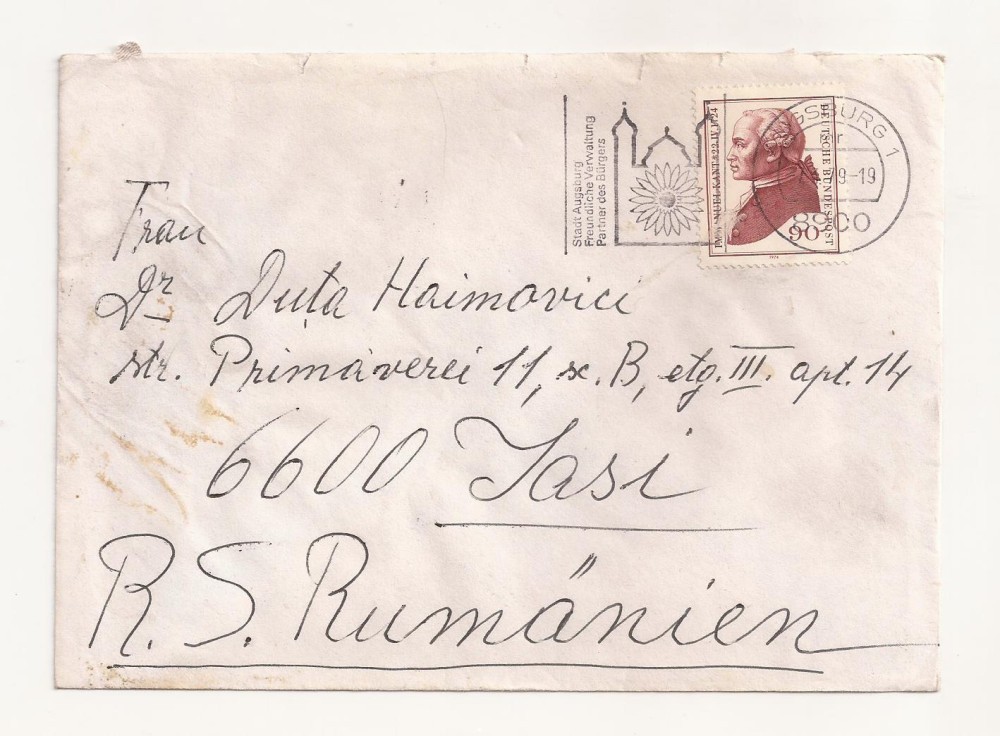 Stadt Augsburg
Freundliche Verwaltung
Partner des Bürgers
IMMANUEL KANT * 22.IV.1724
DEUTSCHE BUNDESPOST
90
1974
AUGSBURG 1
9-19
8900
Frau
Dr Duța Haimovici
str. Primăverei 11, sc. B, etg. III. apt. 14
6600 Iasi
R. S. Rumänien